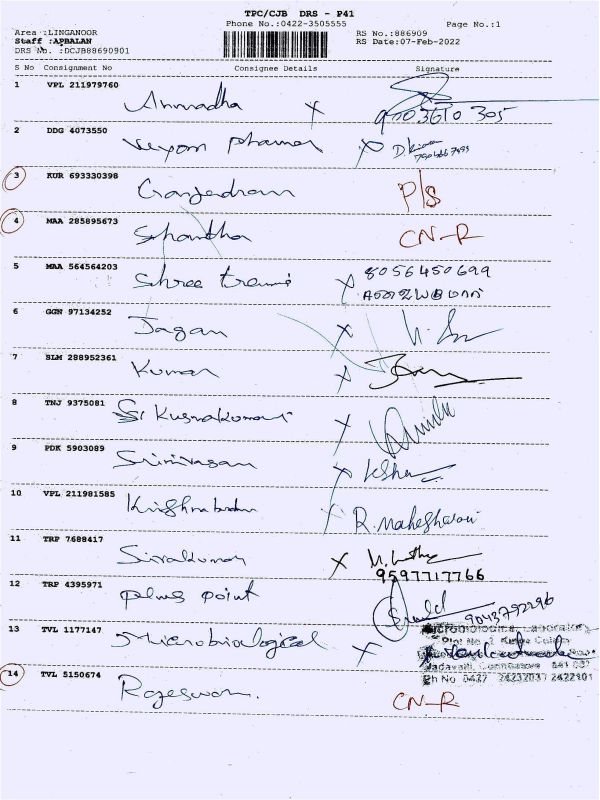 TPC/CJB DRS - P41
Phone No.:0422-3505555
Page No.:1
Area :LINGANOOR
Staff :APBALAN
DRS No. :DCJB88690901
RS No.:886909
RS Date:07-Feb-2022
S No Consignment No Consignee Details Signature
1 VPL 211979760
Anuradha X
9003610 305
2 DDG 4073550
Pharma X
3 KUR 693330398
P/S
4 MAA 285895673
Shantha CN-R
5 MAA 564564203
Shree X 8056450699
6 GGN 97134252
Jagan X
7 SLM 288952361
Kumar X
8 TNJ 9375081
Sri X
9 PDK 5903089
Srinivasan X
10 VPL 211981585
R. Maheshwari
11 TRP 7688417
Sivakumar X
9597717766
12 TRP 4395971
plus point
9043792196
13 TVL 1177147
Microbiological X
Laboratory
14 TVL 5150674
Rajeswari. CN-R